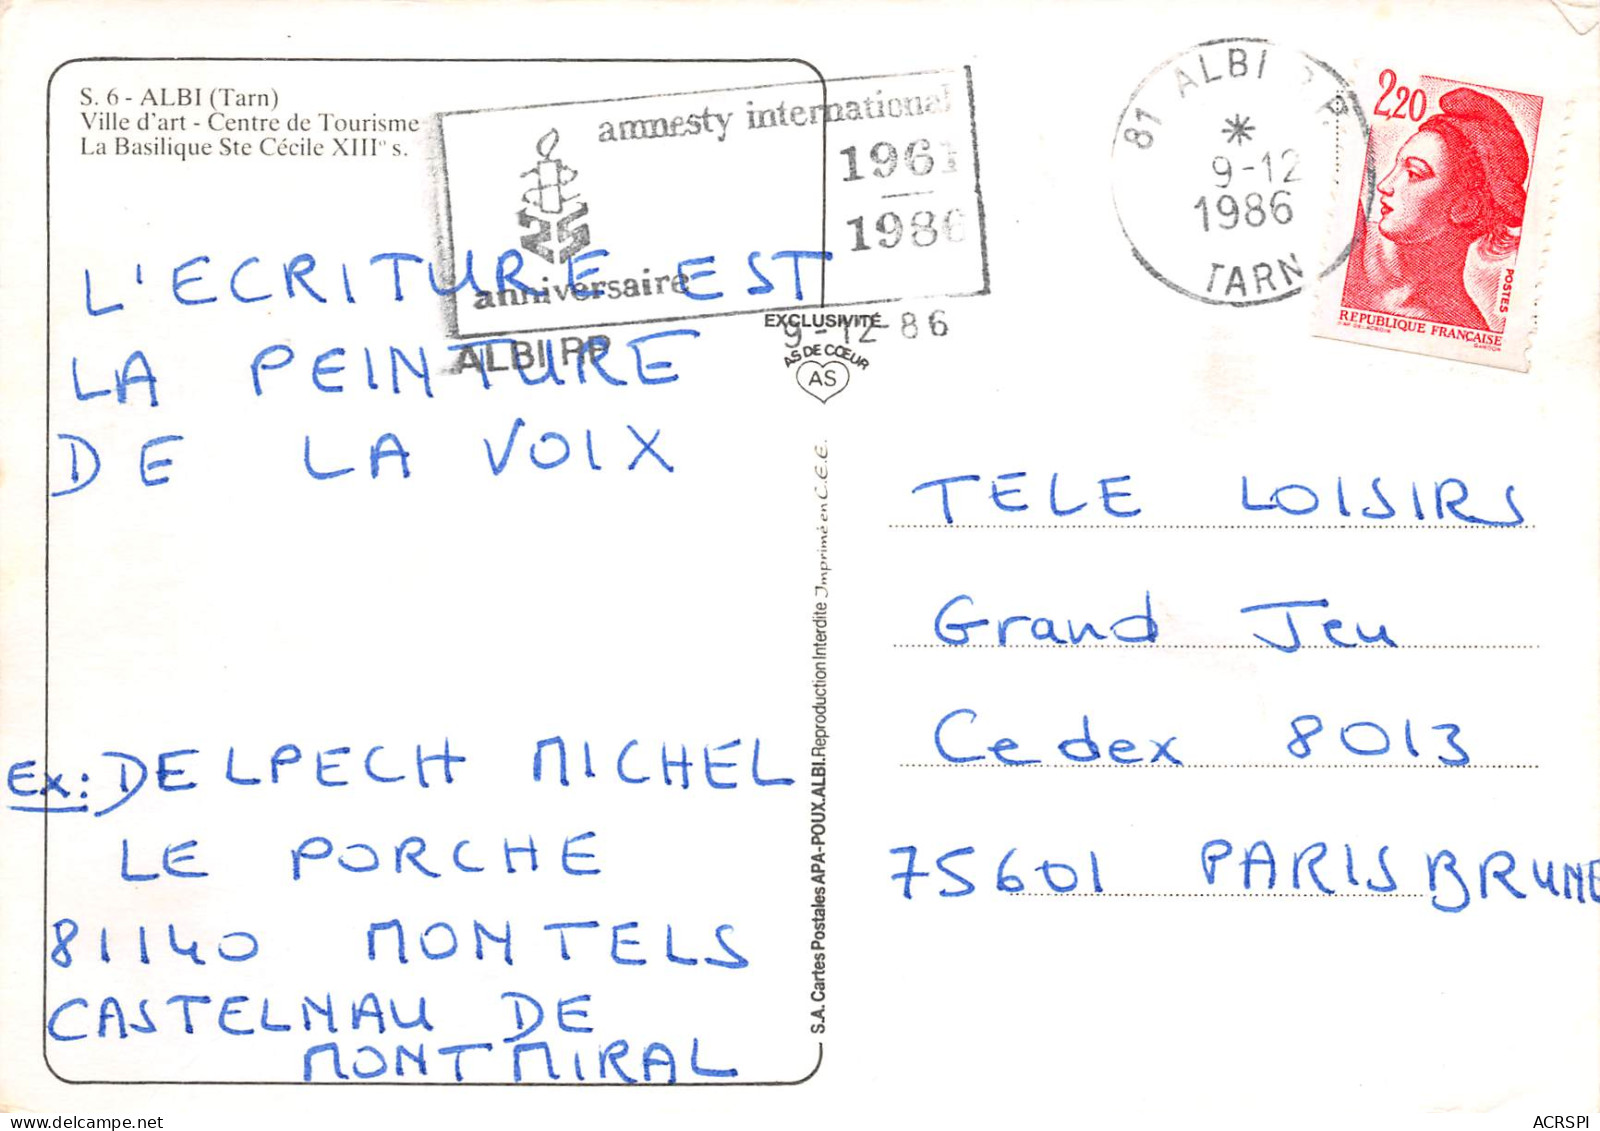 S. 6 - ALBI (Tarn)
Ville d'art - Centre de Tourisme
La Basilique Ste Cécile XIIIᵉ s.
amnesty international
1961
1986
25
anniversaire
ALBI RP
9-12-86
81 ALBI R P
9-12
1986
TARN
2,20
POSTES
REPUBLIQUE FRANÇAISE
D'AP. DELACROIX
GANDON
L'ECRITURE EST
LA PEINTURE
DE LA VOIX
EXCLUSIVITÉ
AS DE CŒUR
AS
Ex: DELPECH MICHEL
LE PORCHE
81140 MONTELS
CASTELNAU DE
MONTMIRAL
S.A. Cartes Postales APA-POUX.ALBI.Reproduction Interdite Imprimé en C.E.E.
TELE LOISIRS
Grand Jeu
Cedex 8013
75601 PARIS BRUNE
ACRSPI